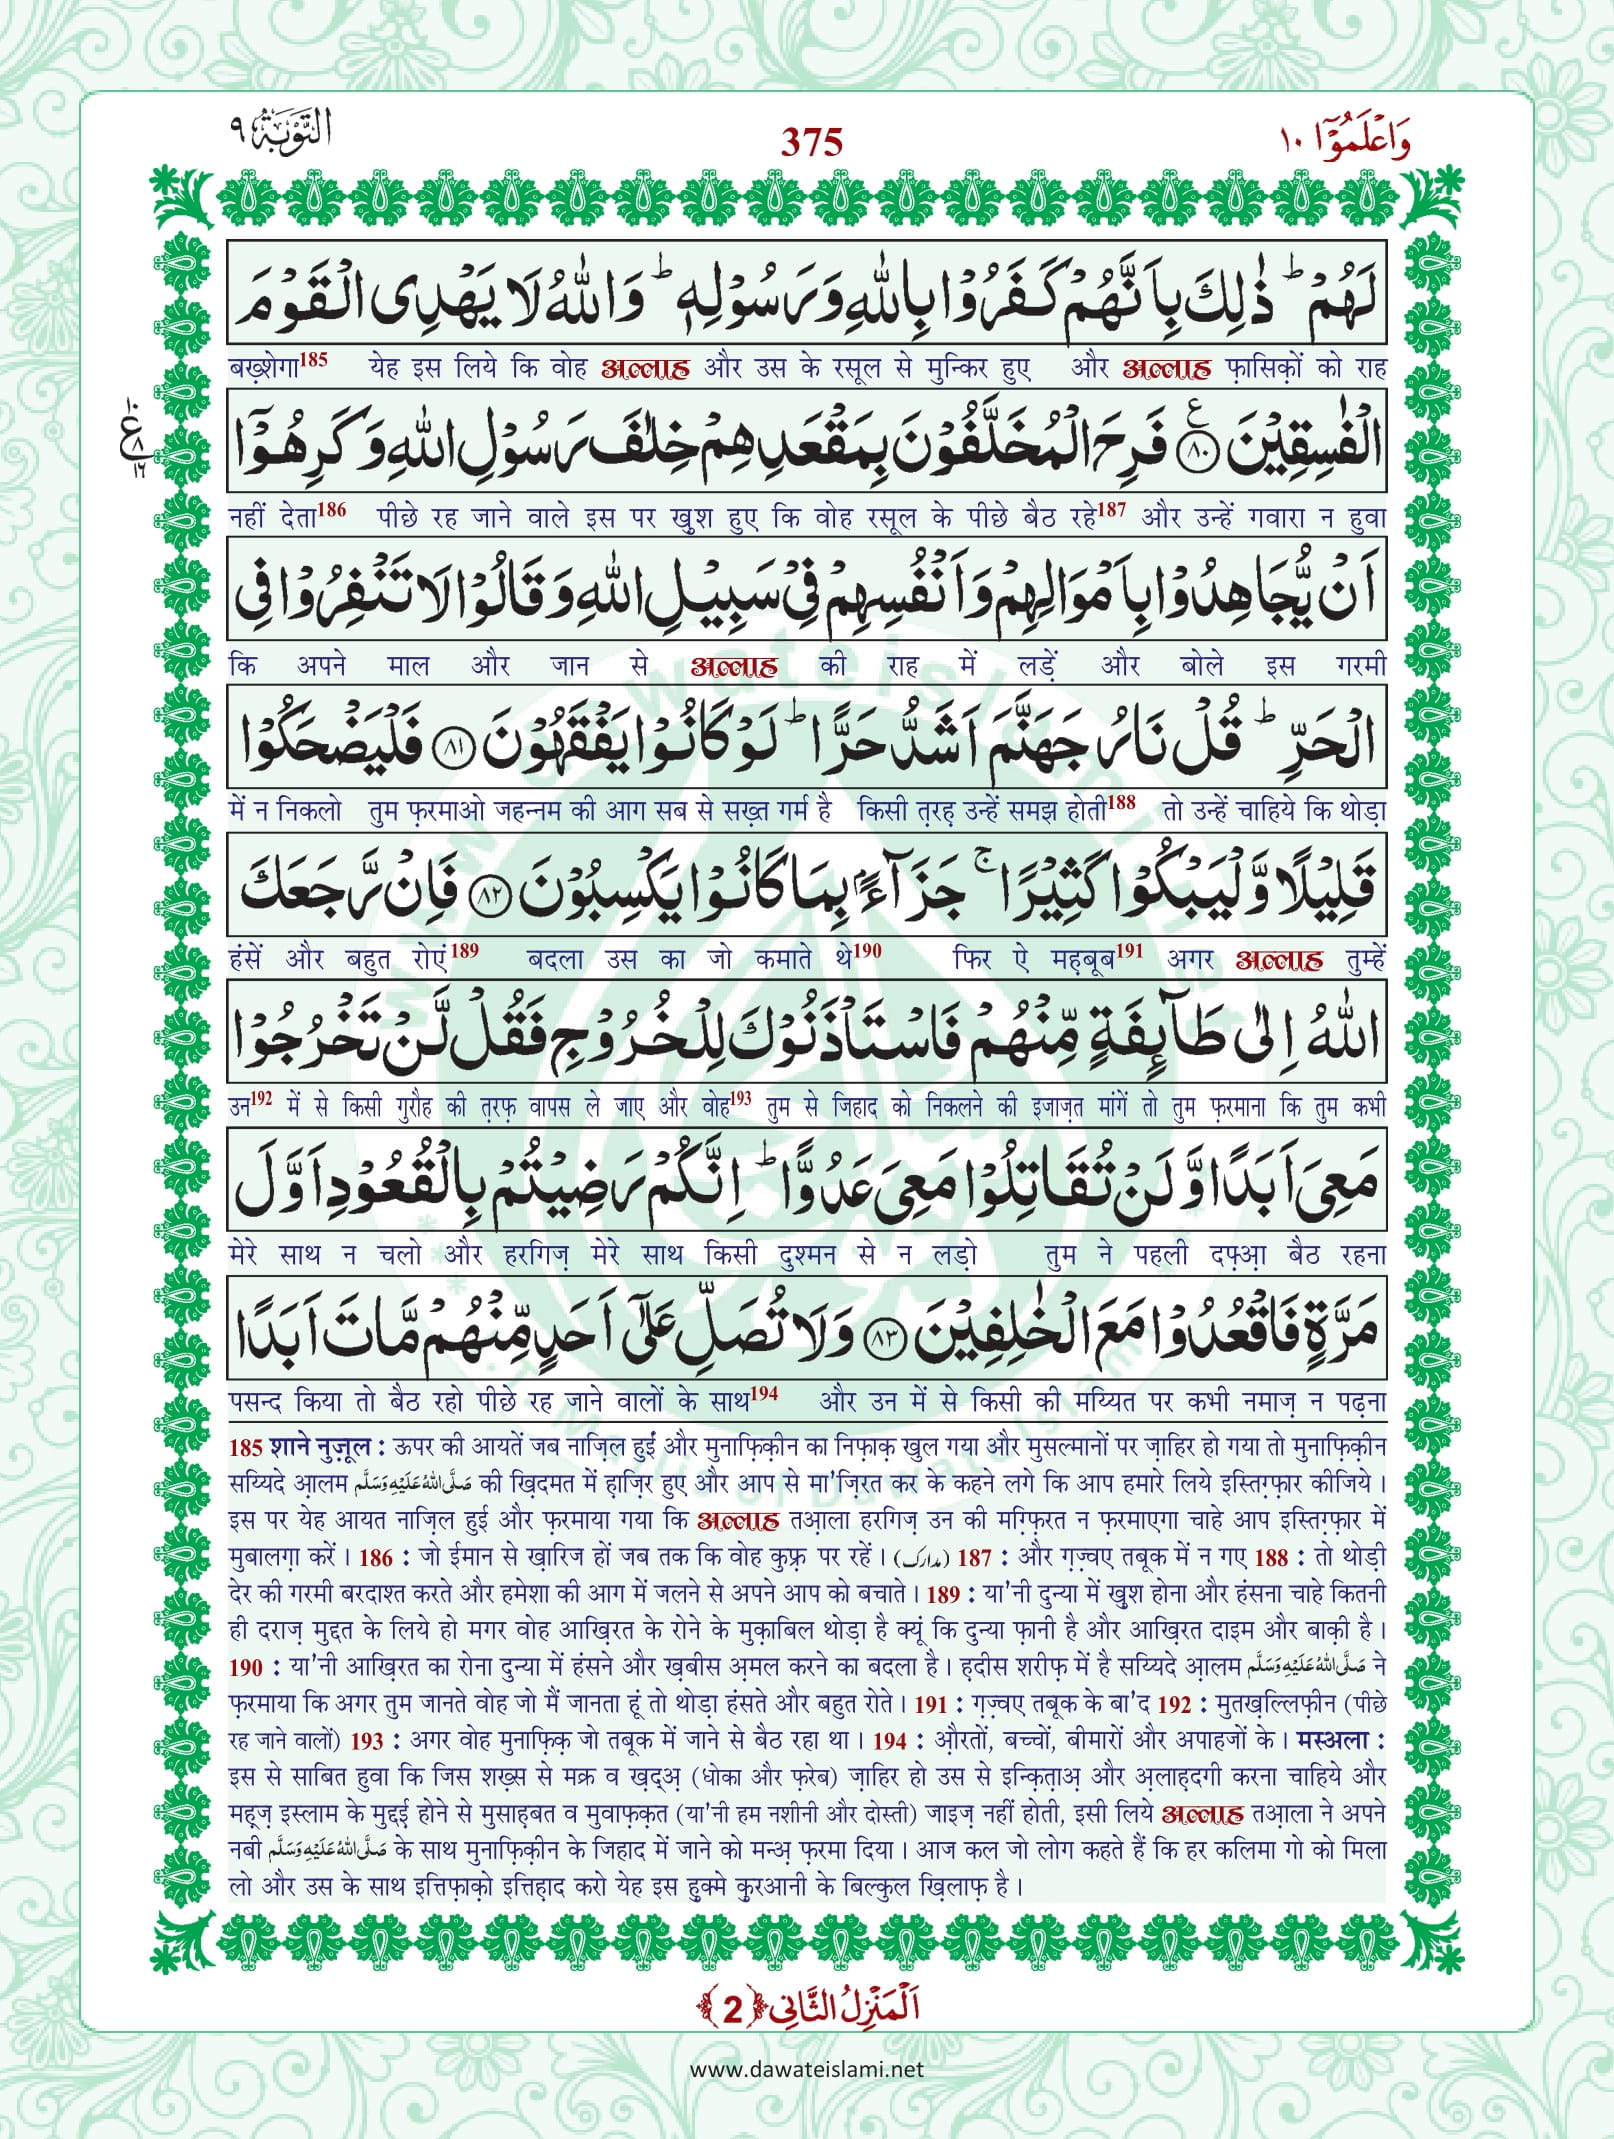 وَاعْلَمُوْۤا ١٠
375
التَّوْبَة ٩
لَهُمْ ؕ ذٰلِكَ بِاَنَّهُمْ كَفَرُوْا بِاللّٰهِ وَ رَسُوْلِهٖ ؕ وَ اللّٰهُ لَا یَهْدِی الْقَوْمَ
बख़्शेगा185 येह इस लिये कि वोह अल्लाह और उस के रसूल से मुन्किर हुए और अल्लाह फ़ासिक़ों को राह
الْفٰسِقِیْنَ ﴿٨٠﴾ ع فَرِحَ الْمُخَلَّفُوْنَ بِمَقْعَدِهِمْ خِلٰفَ رَسُوْلِ اللّٰهِ وَ كَرِهُوْۤا
ع ١٠ ٨ ١٦
नहीं देता186 पीछे रह जाने वाले इस पर खुश हुए कि वोह रसूल के पीछे बैठ रहे187 और उन्हें गवारा न हुवा
اَنْ یُّجَاهِدُوْا بِاَمْوَالِهِمْ وَ اَنْفُسِهِمْ فِیْ سَبِیْلِ اللّٰهِ وَ قَالُوْا لَا تَنْفِرُوْا فِی
कि अपने माल और जान से अल्लाह की राह में लड़ें और बोले इस गरमी
الْحَرِّ ؕ قُلْ نَارُ جَهَنَّمَ اَشَدُّ حَرًّا ؕ لَوْ كَانُوْا یَفْقَهُوْنَ ﴿٨١﴾ فَلْیَضْحَكُوْا
में न निकलो तुम फ़रमाओ जहन्नम की आग सब से सख़्त गर्म है किसी त़रह उन्हें समझ होती188 तो उन्हें चाहिये कि थोड़ा
قَلِیْلًا وَّ لْیَبْكُوْا كَثِیْرًا ۚ جَزَآءًۢ بِمَا كَانُوْا یَكْسِبُوْنَ ﴿٨٢﴾ فَاِنْ رَّجَعَكَ
हंसें और बहुत रोएं189 बदला उस का जो कमाते थे190 फिर ऐ मह़बूब191 अगर अल्लाह तुम्हें
اللّٰهُ اِلٰى طَآىِٕفَةٍ مِّنْهُمْ فَاسْتَاْذَنُوْكَ لِلْخُرُوْجِ فَقُلْ لَّنْ تَخْرُجُوْا
उन192 में से किसी गुरौह की त़रफ़ वापस ले जाए और वोह193 तुम से जिहाद को निकलने की इजाज़त मांगें तो तुम फ़रमाना कि तुम कभी
مَعِیَ اَبَدًا وَّ لَنْ تُقَاتِلُوْا مَعِیَ عَدُوًّا ؕ اِنَّكُمْ رَضِیْتُمْ بِالْقُعُوْدِ اَوَّلَ
मेरे साथ न चलो और हरगिज़ मेरे साथ किसी दुश्मन से न लड़ो तुम ने पहली दफ़्आ़ बैठ रहना
مَرَّةٍ فَاقْعُدُوْا مَعَ الْخٰلِفِیْنَ ﴿٨٣﴾ وَ لَا تُصَلِّ عَلٰۤى اَحَدٍ مِّنْهُمْ مَّاتَ اَبَدًا
पसन्द किया तो बैठ रहो पीछे रह जाने वालों के साथ194 और उन में से किसी की मय्यित पर कभी नमाज़ न पढ़ना
185 शाने नुज़ूल : ऊपर की आयतें जब नाज़िल हुईं और मुनाफ़िक़ीन का निफ़ाक़ खुल गया और मुसल्मानों पर ज़ाहिर हो गया तो मुनाफ़िक़ीन
सय्यिदे आ़लम صَلَّى اللّٰهُ عَلَيْهِ وَسَلَّم की ख़िदमत में ह़ाज़िर हुए और आप से मा'ज़िरत कर के कहने लगे कि आप हमारे लिये इस्तिग़्फ़ार कीजिये ।
इस पर येह आयत नाज़िल हुई और फ़रमाया गया कि अल्लाह तआ़ला हरगिज़ उन की मग़्फ़िरत न फ़रमाएगा चाहे आप इस्तिग़्फ़ार में
मुबालग़ा करें । 186 : जो ईमान से ख़ारिज हों जब तक कि वोह कुफ़्र पर रहें । (مدارك) 187 : और ग़ज़्वए तबूक में न गए 188 : तो थोड़ी
देर की गरमी बरदाश्त करते और हमेशा की आग में जलने से अपने आप को बचाते । 189 : या'नी दुन्या में खुश होना और हंसना चाहे कितनी
ही दराज़ मुद्दत के लिये हो मगर वोह आख़िरत के रोने के मुक़ाबिल थोड़ा है क्यूं कि दुन्या फ़ानी है और आख़िरत दाइम और बाक़ी है ।
190 : या'नी आख़िरत का रोना दुन्या में हंसने और ख़बीस अ़मल करने का बदला है । ह़दीस शरीफ़ में है सय्यिदे आ़लम صَلَّى اللّٰهُ عَلَيْهِ وَسَلَّم ने
फ़रमाया कि अगर तुम जानते वोह जो मैं जानता हूं तो थोड़ा हंसते और बहुत रोते । 191 : ग़ज़्वए तबूक के बा'द 192 : मुतख़ल्लिफ़ीन (पीछे
रह जाने वालों) 193 : अगर वोह मुनाफ़िक़ जो तबूक में जाने से बैठ रहा था । 194 : औ़रतों, बच्चों, बीमारों और अपाहजों के । मस्अला :
इस से साबित हुवा कि जिस शख़्स से मक्र व ख़द्अ़ (धोका और फ़रेब) ज़ाहिर हो उस से इन्क़ित़ाअ़ और अ़लाह़दगी करना चाहिये और
मह़ूज़ इस्लाम के मुद्दई होने से मुसाह़बत व मुवाफ़क़त (या'नी हम नशीनी और दोस्ती) जाइज़ नहीं होती, इसी लिये अल्लाह तआ़ला ने अपने
नबी صَلَّى اللّٰهُ عَلَيْهِ وَسَلَّم के साथ मुनाफ़िक़ीन के जिहाद में जाने को मन्अ़ फ़रमा दिया । आज कल जो लोग कहते हैं कि हर कलिमा गो को मिला
लो और उस के साथ इत्तिफ़ाक़ो इत्तिह़ाद करो येह इस हुक्मे क़ुरआनी के बिल्कुल ख़िलाफ़ है ।
اَلْمَنْزِلُ الثَّانِی ﴿2﴾
www.dawateislami.net